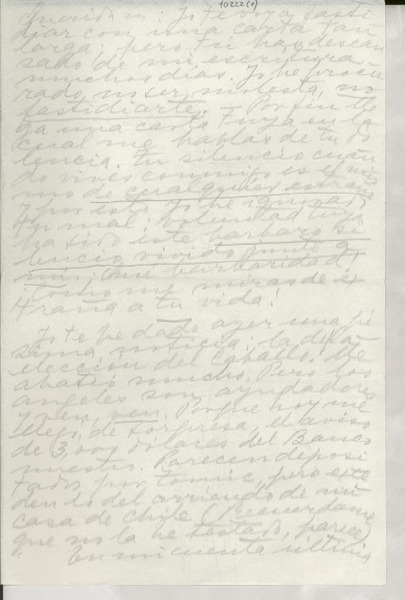 10222(1)
Querida mía: Yo te voy a fasti
diar con una carta tan
larga; pero tú has descan
sado de mi escritura
muchos días. Yo he procu
rado, no ser molesta, no
fastidiarte. - Por fin lle
ga una carta tuya en la
cual me hablas de tu do
lencia. Tu silencio cuan
do vives conmigo es el mis
mo de cualquier extraño
y por eso yo he ignorado
tu mal; voluntad tuya
ha sido este bárbaro si
lencio vivido junto a
mí. ¡Qué barbaridad!
¡Cómo me miras de ex
traña a tu vida!
Yo te he dado ayer una pé
sima noticia: la de la
elección del caballo. Me
abatió mucho. Pero los
ángeles son ayudadores
y ven, ven. Porque hoy me
llegó, de sorpresa, el aviso
de 3,000 dólares del Banco
nuestro. Parecen deposi
tados por Tomic, pero exce
den lo del arriendo de mi
casa de Chile (Recuérdame
que no la he testado, parece)
En mi cuenta última